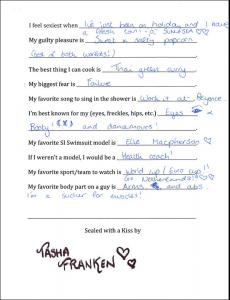 I feel sexiest when I've just been on holiday and I have
a fresh tan! - a SUNKISSA
My guilty pleasure is Sweet & salty popcorn
(best of both worlds!)
The best thing I can cook is Thai green curry
My biggest fear is Failure
My favorite song to sing in the shower is Work it out - Beyonce
I'm best known for my (eyes, freckles, hips, etc.) Eyes &
Booty! and dancemoves!
My favorite SI Swimsuit model is Elle Macpherson
If I weren't a model, I would be a Health coach!
My favorite sport/team to watch is world cup / Euro cup!!
Go Netherlands!!
My favorite body part on a guy is Arms and abs.
I'm a sucker for muscles!
Sealed with a Kiss by
TASHA
FRANKEN